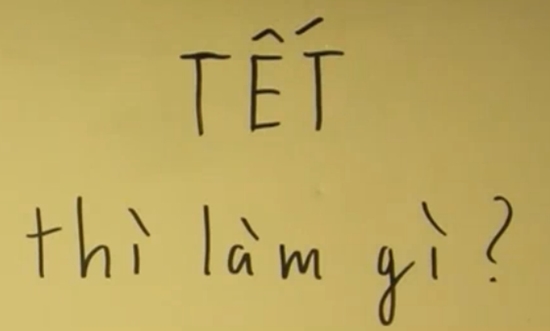 TẾT
thì làm gì?